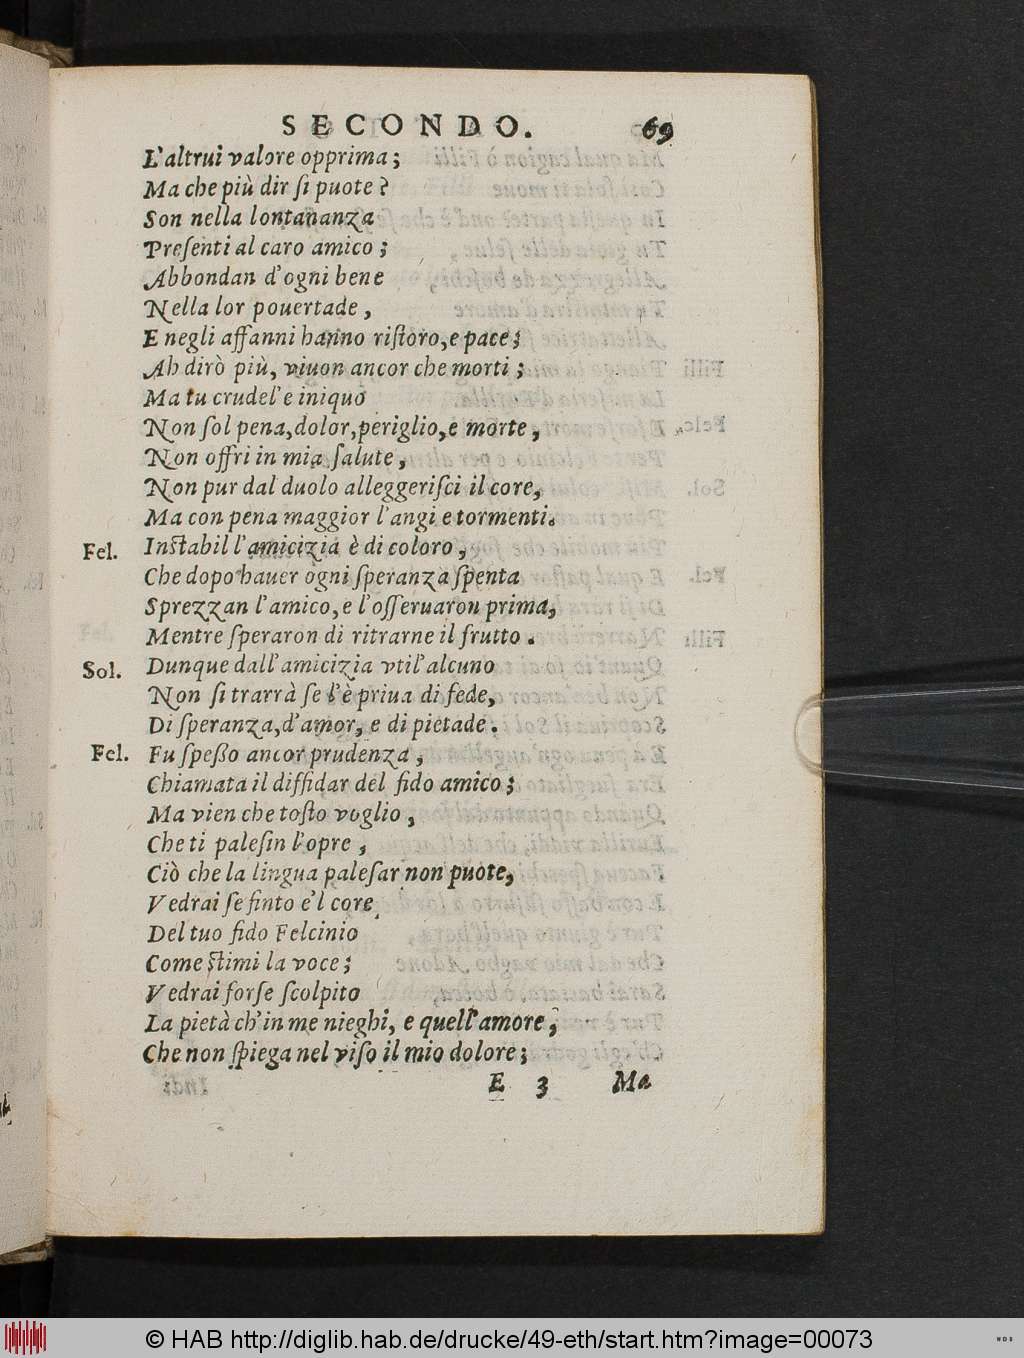 SECONDO. 69
L'altrui valore opprima;
Ma che più dir si puote?
Son nella lontananza
Presenti al caro amico;
Abbondan d'ogni bene
Nella lor pouertade,
E negli affanni hanno ristoro, e pace;
Ah dirò più, viuon ancor che morti;
Ma tu crudel'e iniquo
Non sol pena, dolor, periglio, e morte,
Non offri in mia salute,
Non pur dal duolo alleggerisci il core,
Ma con pena maggior l'angi e tormenti.
Fel. Instabil l'amicizia è di coloro,
Che dopo hauer ogni speranza spenta
Sprezzan l'amico, e l'osseruaron prima,
Mentre speraron di ritrarne il frutto.
Sol. Dunque dall'amicizia vtil'alcuno
Non si trarrà se l'è priua di fede,
Di speranza, d'amor, e di pietade.
Fel. Fu speßo ancor prudenza,
Chiamata il diffidar del fido amico;
Ma vien che tosto voglio,
Che ti palesin l'opre,
Ciò che la lingua palesar non puote,
Vedrai se finto e'l core
Del tuo fido Felcinio
Come stimi la voce;
Vedrai forse scolpito
La pietà ch'in me nieghi, e quell'amore,
Che non spiega nel viso il mio dolore;
E 3 Ma
© HAB http://diglib.hab.de/drucke/49-eth/start.htm?image=00073